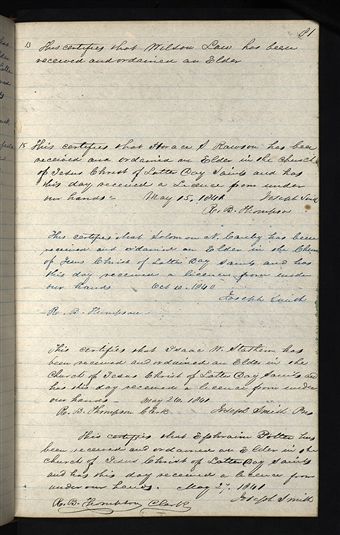 21
13 This certifies that Weldon Law has been
received and ordained an Elder
15 This certifies that Horace S. Rawson has been
received and ordained an Elder in the church
of Jesus Christ of Latter Day Saints and has
this day received a Licence from under
our hands - May 15, 1841 Joseph Smith
R. B. Thompson
This certifies that Solomon has been
received and ordained an Elder in the Church
of Jesus Christ of Latter Day Saints and has
this day received a licence from under
our hands Oct 10 1840
Joseph Smith
R. B. Thompson
This certifies that Isaac W. has
been received and ordained an Elder in the
Church of Jesus Christ of Latter Day Saints and
has this day received a licence from under
our hands - May 26 1841
R. B. Thompson Clerk Joseph Smith Pres
This certifies that Ephraim Potter has
been received and ordained an Elder in the
Church of Jesus Christ of Latter Day Saints
and has this day received a licence from
under our hands. May 27 1841
R. B. Thompson Clerk Joseph Smith